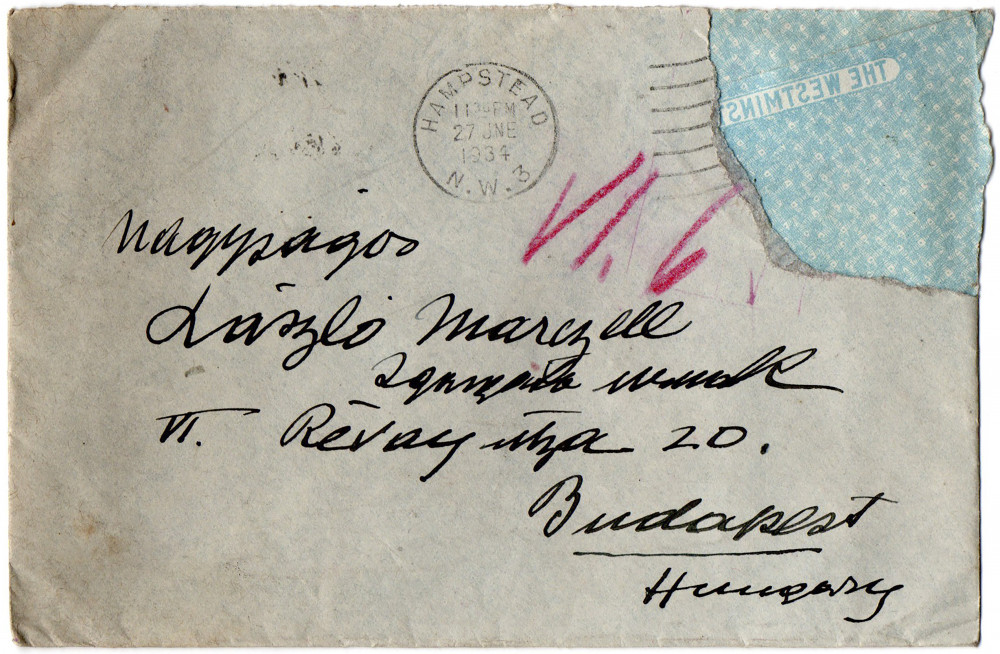 HAMPSTEAD
11 30 PM
27 JNE
1934
N.W.3
THE WESTMINS
VI. 6
Nagyságos
László Marczell
igazgató urnak
VI. Révay utca 20.
Budapest
Hungary